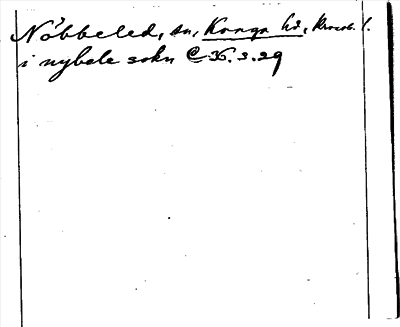 Nöbbeled, sn, Konga hd, Kronob. l.
i nybele sokn @ 36.3.29